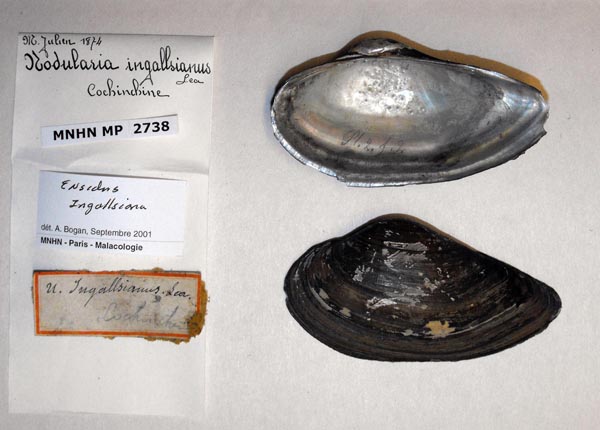 M. Julien 1874
Nodularia ingallsianus
Lea
Cochinchine
MNHN MP 2738
Ensidens
Ingallsiana
dét. A. Bogan, Septembre 2001
MNHN - Paris - Malacologie
U. Ingallsianus. Lea.